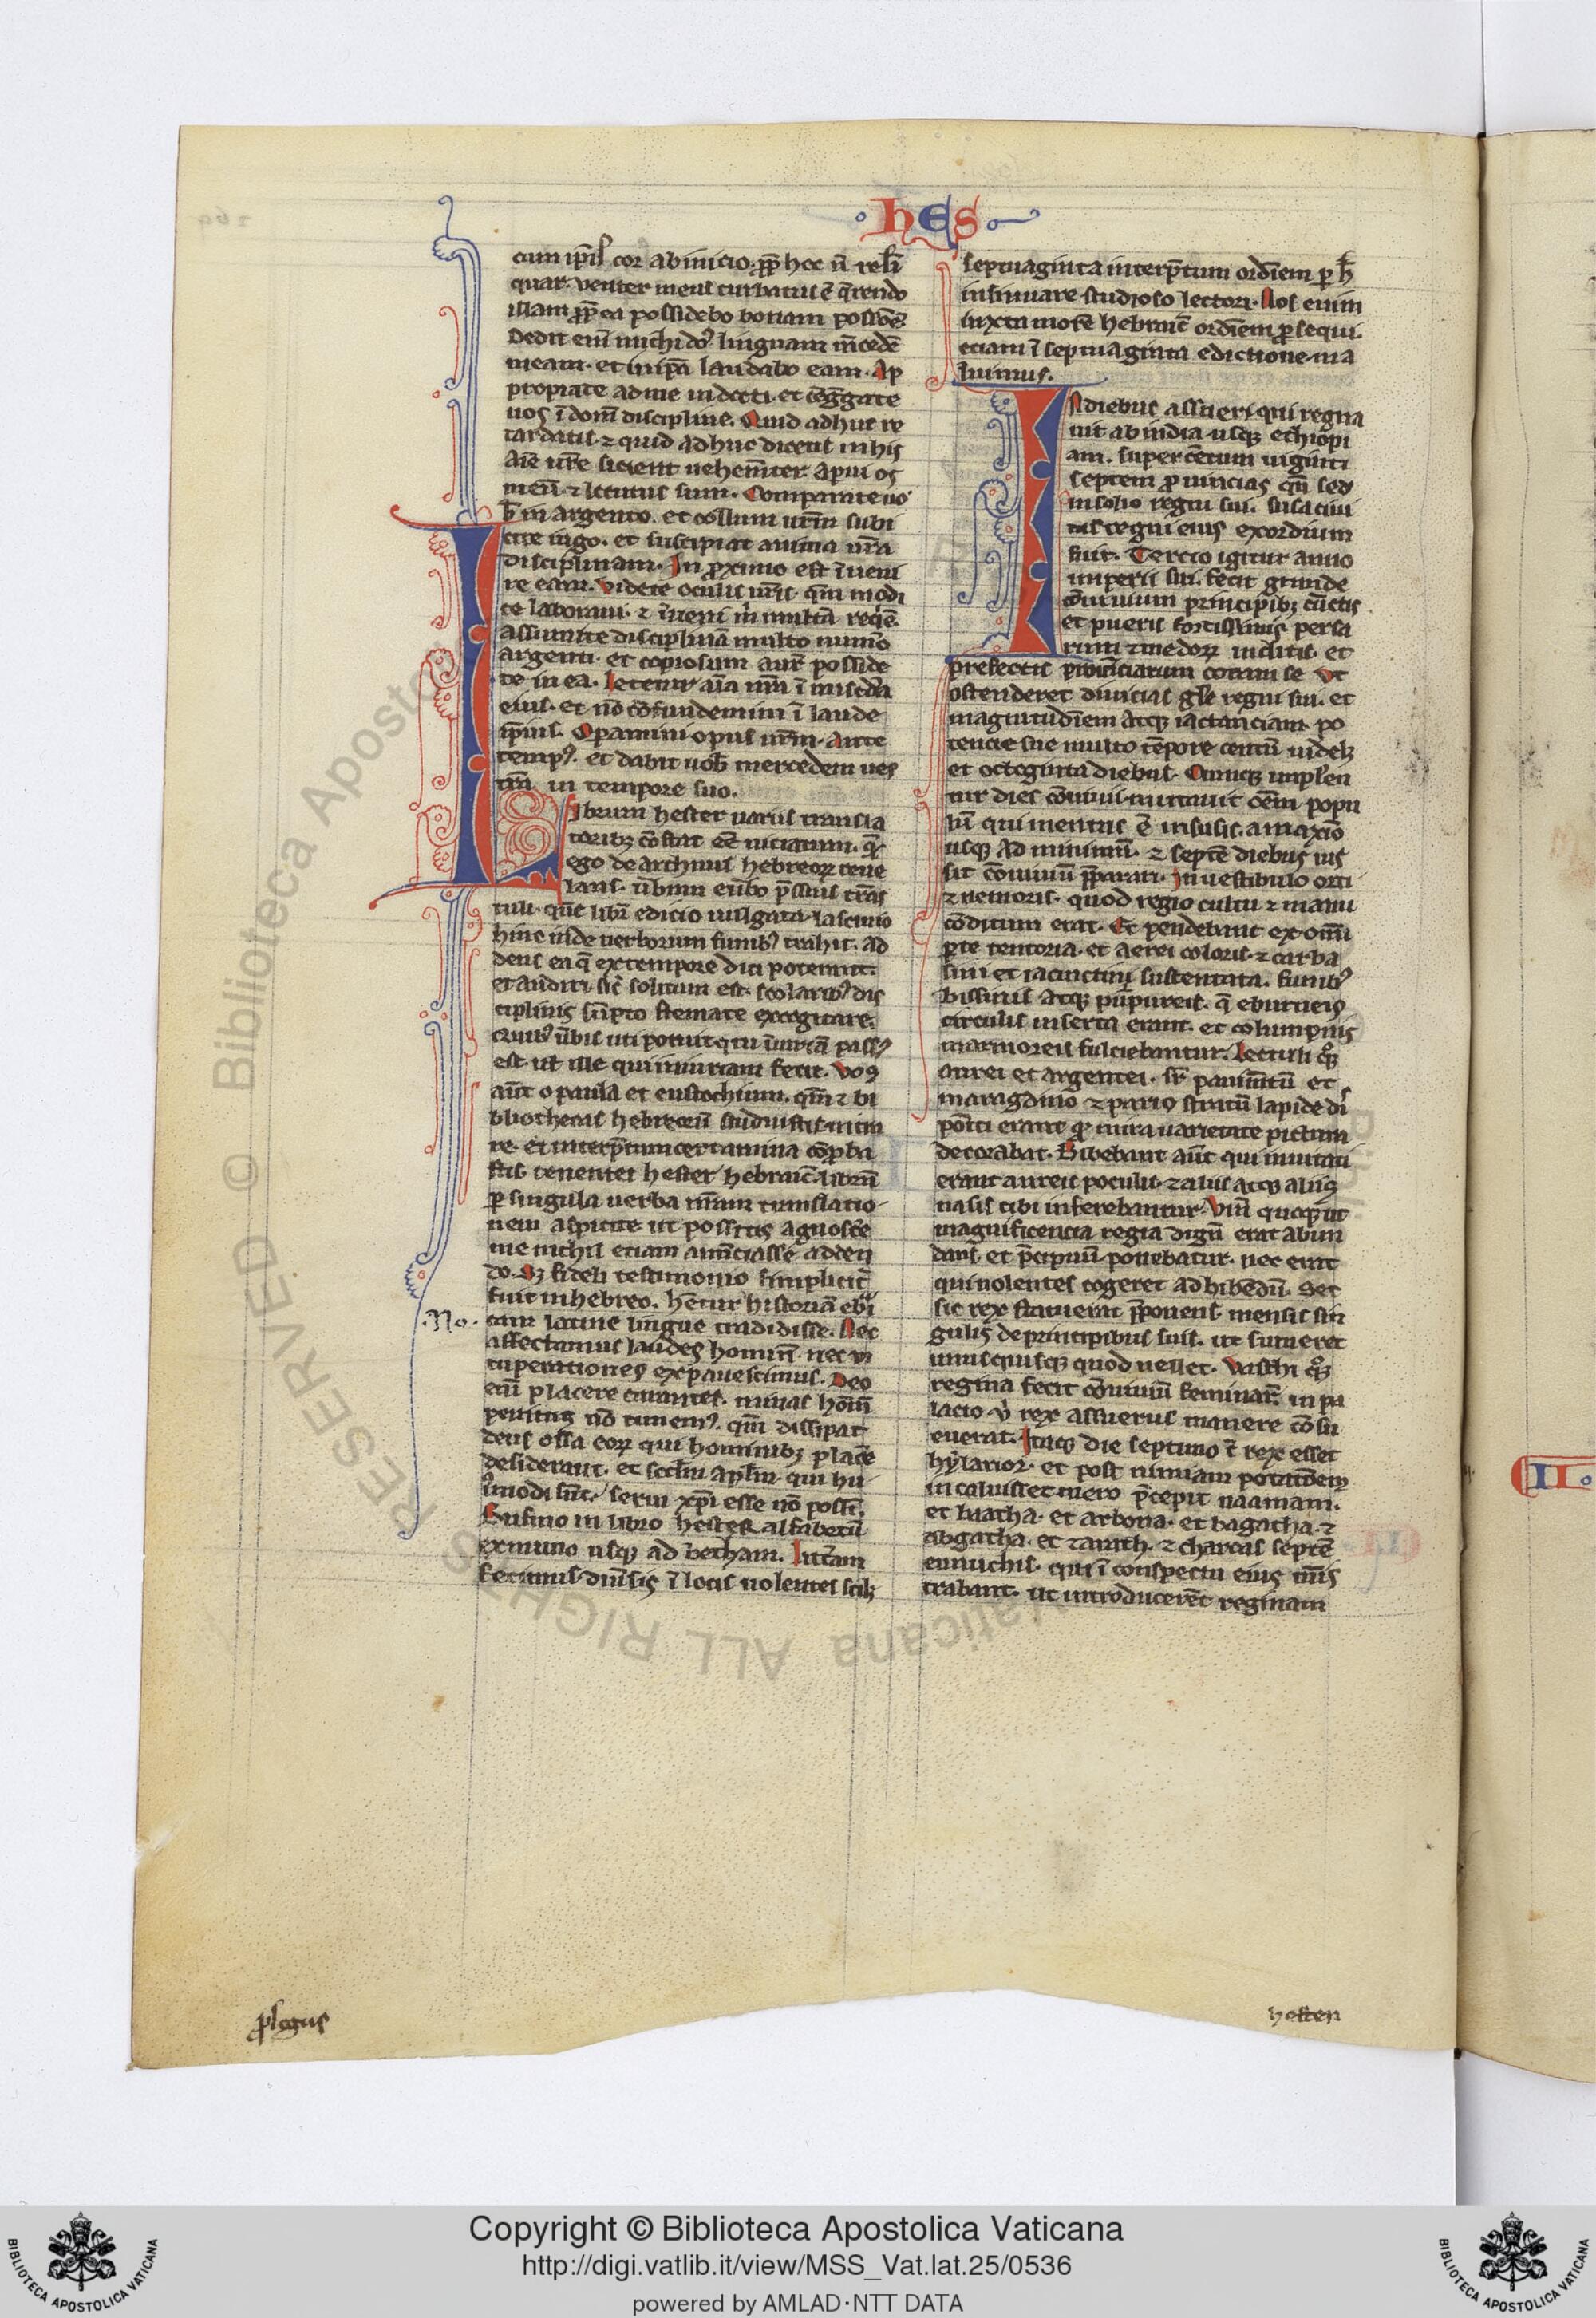 hes
cum ip̅is cor ab inicio. p̅p̅ hoc n̅ reli̅
quar. venter meus turbatus e̅ q̅rendo
illam p̅p̅ea possidebo bonam poss̅o̅e̅.
Dedit eni̅ michi d̅s̅ linguam m̅cede̅
meam. et in ip̅a laudabo eam. Ap
propiate ad me indocti. et co̅g̅gate
uos i̅ domu̅ discipline. Quid adhuc re
tardatis. ⁊ quid adhuc dicetis in his
Ai̅e ur̅e sitiunt uehem̅ter. Aperui os
meu̅ ⁊ locutus sum. Comparate uo
b̅ in argento. et collum ur̅m subi
cite iugo. et suscipiat anima ur̅a
disciplinam. In proximo est i̅ueni
re eam. Videte oculis ur̅is. qm̅ modi
ce laboraui. ⁊ i̅ueni m̅ multa̅ req̅e̅.
Assumite disciplina̅ multo num̅o
argenti. et copiosum aur̅ posside
te in ea. Letetur ai̅a ur̅a i̅ mis̅cd̅ia
eius. et no̅ co̅fundemini i̅ laude
ip̅ius. Operamini opus ur̅m. ante
temp9. et dabit uob̅ mercedem ues
tra̅ in tempore suo.
Librum hester uariis transla
toribꝫ co̅stat ee̅ uiciatum. q̅
ego de archiuis hebreoꝝ reue
lans. u̅bum eu̅bo p̅ssius tra̅s
tuli. que̅ libr̅ edicio uulgata. lascinio
hinc inde uerborum funib9 trahit. ad
dens ea q̅ ex tempore dici poterant.
et audiri. sic̅ solitum est. scolarib9 dis
ciplinis su̅pto themate excogitare.
Quib9 u̅bis uti potuit qui iniuria̅ pass9
est. ul̅ ille qui iniuriam fecit. Vos
aut̅ o paula et eustochium. qm̅ ⁊ bi
bliothecas hebreoru̅ studuistis intra
re. et interp̅tum certamina co̅p̅ba
stis. tenentes hester hebraic̅. libru̅
ꝑ singula uerba nr̅am translatio
nem aspicite. ut possitis agnosce̅
me nichil etiam aum̅tasse adden
do. Sꝫ fideli testimonio simplicit̅
sicut in hebreo. he̅tur historia̅ eb̅i
cam latine lingue tradidisse. Nec
·No·
affectamus laudes hominu̅. nec ui
tuperationes expauescimus. Deo
eni̅ placere curantes. minas homi̅
penitus no̅ timem9. qm̅ dissipat
deus ossa eoꝝ qui hominibꝫ place̅
desiderant. et sc̅d̅m apl̅m. qui hu
i9modi su̅t. serui xp̅i esse no̅ poss̅t.
Rufino in libro hester alfabetu̅
ex minio usqꝫ ad betham. Litt̅am
fecimus diu̅sis i̅ locis uolentes scilꝫ
septuaginta interp̅tum ordi̅em ꝑ h̅
insinuare studioso lectori. Nos enim
iuxta more̅ hebraic̅ ordi̅em ꝓsequi
etiam i̅ septuaginta edictione ma
luimus.
In diebus assueri qui regna
uit ab india usqꝫ ethiopi
am. super ce̅tum uiginti
septem ꝓuincias. qn̅ sed
in solio regni sui. susa ciui
tas regni eius exordium
fuit. Tercio igitur anno
imperii sui. fecit grande
co̅uiuium principibꝫ cu̅ctis
et pueris fortissimis persa
rum ⁊ medoꝝ inclitis. et
prefectis prouinciarum coram se. Vt
ostenderet diuicias gl̅e regni sui. et
magnitudi̅em atqꝫ iactanciam po
tencie sue multo te̅pore centu̅ uidelꝫ
et octoginta diebus. Cumqꝫ implen
tur dies co̅uiuii. inuitauit o̅em popu
lu̅ qui inuentus e̅ in susis. a maxi̅o
usqꝫ ad minimu̅. ⁊ septe̅ diebus ius
sit co̅uiuiu̅ p̅parari. In uestibulo orti
⁊ nemoris. quod regio cultu ⁊ manu
co̅ditum erat. Et pendebant ex om̅i
ꝑte tentoria. et aerei coloris. ⁊ carba
sini et iacinctini sustentata. funib9
bissinis atqꝫ purpureis. q̅ eburneis
circulis inserta erant. et columpnis
marmoreis fulciebantur. Lectuli qꝫ
aurei et argentei. sr̅ pauim̅tu̅ et
maragdino ⁊ pario stratu̅ lapide di
positi erant. q̅ mira uarietate pictura
decorabat. Bibebant aut̅ qui inuitati
erant aureis poculis. ⁊ aliis atqꝫ aliis
uasis cibi inferebantur. Vinu̅ quoqꝫ ut
magnificencia regia dignu̅ erat abun
dans. et p̅cipuu̅ ponebatur. nec erat
qui nolentes cogeret ad bibe̅du̅. Set
sic rex statuerat p̅ponens mensis sin
gulis de principibus suis. ut sumeret
unusquisqꝫ quod uellet. Vasthi qꝫ
regina fecit co̅uiuiu̅ feminar̅ in pa
lacio u̅ rex assuerus manere co̅su
euerat. Itaqꝫ die septimo c̅ rex esset
hylarior. et post nimiam potatio̅em
incaluisset mero p̅cepit naamam.
et baatha. et arbona. et bagatha. ⁊
abgatha. et zarath. ⁊ charcas septe̅
eunuchis. qui i̅ conspectu eius mi̅s
trabant. ut introducere̅t reginam
II.
ꝓlogus
hester
© Biblioteca Apostolica Vaticana ALL RIGHTS RESERVED
Copyright © Biblioteca Apostolica Vaticana
http://digi.vatlib.it/view/MSS_Vat.lat.25/0536
powered by AMLAD·NTT DATA
BIBLIOTECA APOSTOLICA VATICANA
BIBLIOTECA APOSTOLICA VATICANA